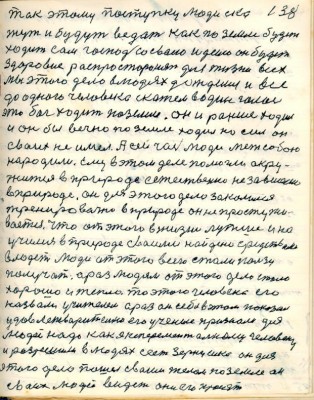 так этому поступку люди ска 138
жут и будут ведат как по земле будет
ходит сам господ со своею идеею он будет
здоровие распространят для жизни всех
мы этого дело в людях дождеши и все
до одного человека скажем в один голос
это бог ходит по земле. он и ранше ходил
и он был вечно по земле ходил но сил он
своих не имел. А сейчас люди меж собою
народили. ему в этом деле помогли окру-
жится в природе естествено независимо
в природе. он для этого дело закалился
тренироват в природе он не простужи-
вается. что от этого в жизни лутшие и на
учился в природе своими найдено средствам
владеет люди от этого всего стали ползу
получат. а раз людям от этого дело стало
хорошо и тепло то этого человека его
назвали учителем а раз он себя в этом показал
его учение признало для
людей надо как експеременталному человеку
и разрешит в людях сеет зернушко он для
этого дело пошел своим телом по земле он
своих людей видет они его просят